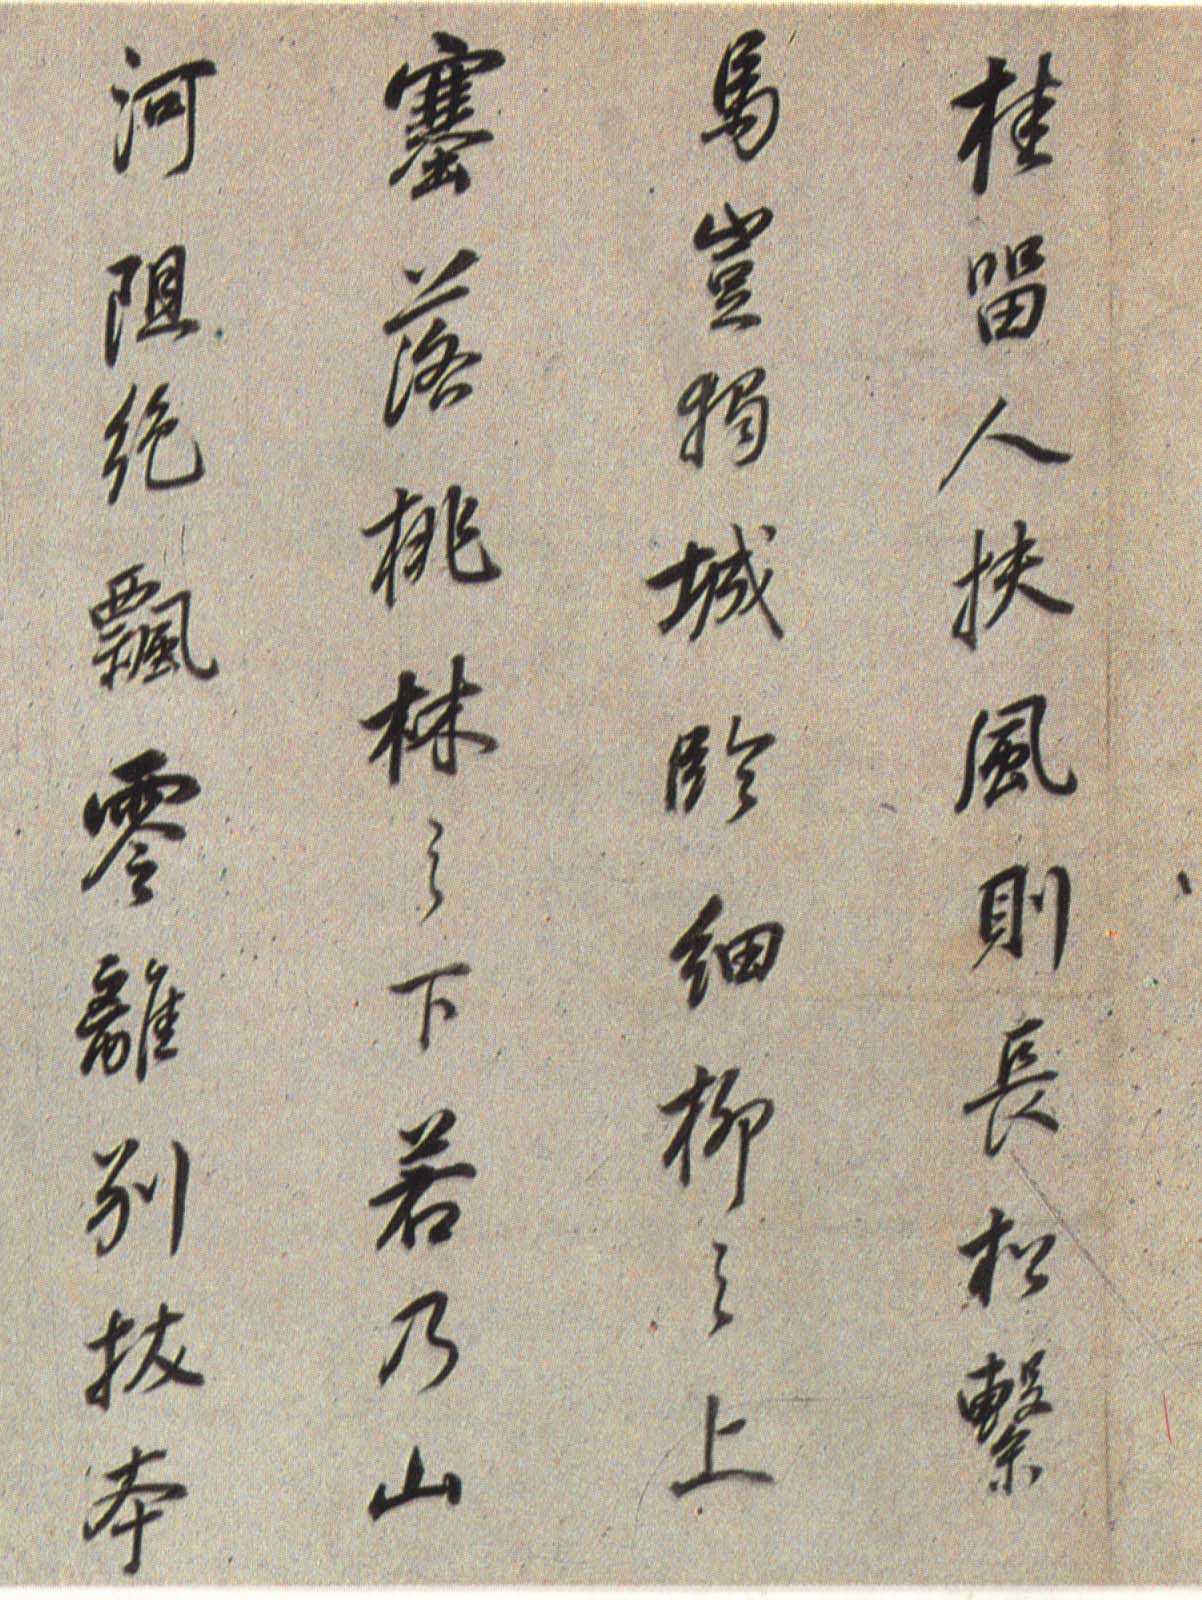 桂留人扶風則長松繫
馬豈獨城臨細柳之上
塞落桃林之下若乃山
河阻絶飄零離別拔本